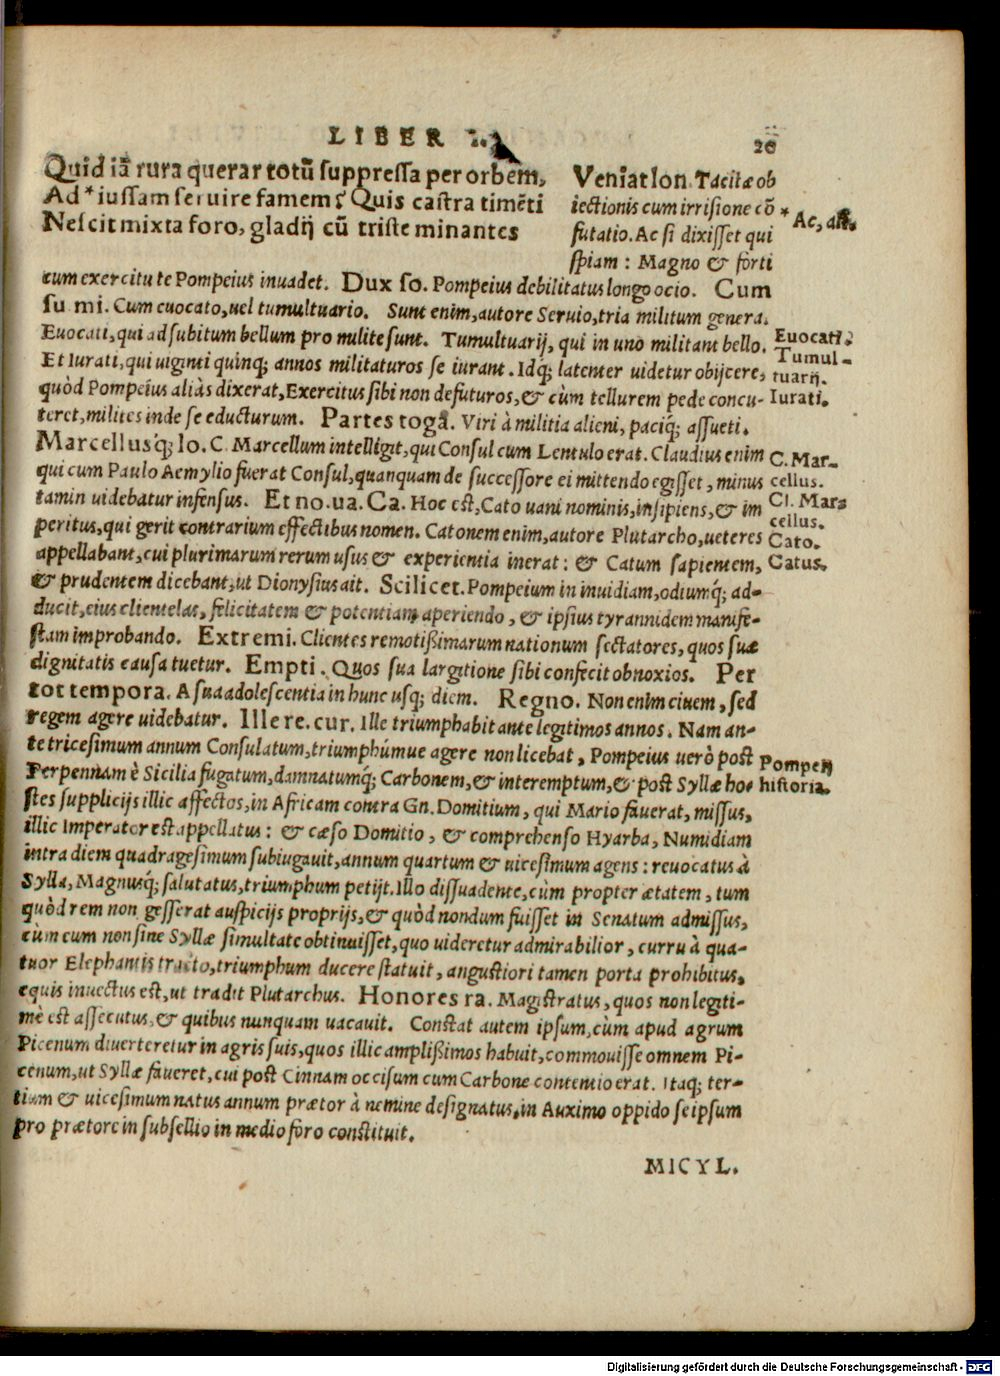 LIBER I.
20
Quid iā rura querar totū suppressa per orbem,
Ad * iussam seruire famem? Quis castra timēti
Nescit mixta foro, gladij cū triste minantes
Veniat lon. Tacitæ ob
iectionis cum irrisione cō
futatio. Ac si dixisset qui
spiam: Magno & forti
* Ac, ass.
cum exercitu te Pompeius inuadet. Dux so. Pompeius debilitatus longo ocio. Cum
su mi. Cum euocato, uel tumultuario. Sunt enim, autore Seruio, tria militum genera.
Euocati, qui ad subitum bellum pro milite sunt. Tumultuarij, qui in uno militant bello.
Et Iurati, qui uiginti quinq; annos militaturos se iurant. Idq; latenter uidetur obijcere,
quòd Pompeius aliàs dixerat, Exercitus sibi non defuturos, & cùm tellurem pede concu-
teret, milites inde se educturum. Partes togā. Viri à militia alieni, paciq; assueti.
Marcellusq; lo. C. Marcellum intelligit, qui Consul cum Lentulo erat. Claudius enim
qui cum Paulo Aemylio fuerat Consul, quanquam de successore ei mittendo egisset, minus
tamin uidebatur infensus. Et no. ua. Ca. Hoc est, Cato uani nominis, insipiens, & im
peritus, qui gerit contrarium effectibus nomen. Catonem enim, autore Plutarcho, ueteres
appellabant, cui plurimarum rerum usus & experientia inerat: & Catum sapientem,
& prudentem dicebant, ut Dionysius ait. Scilicet. Pompeium in inuidiam, odiumq́; ad-
ducit, eius clientelas, felicitatem & potentiam aperiendo, & ipsius tyrannidem manife-
stam improbando. Extremi. Clientes remotißimarum nationum sectatores, quos suæ
dignitatis causa tuetur. Empti. Quos sua largitione sibi confecit obnoxios. Per
tot tempora. A sua adolescentia in hunc usq; diem. Regno. Non enim ciuem, sed
regem agere uidebatur. Ille re. cur. Ille triumphabit ante legitimos annos. Nam an-
te tricesimum annum Consulatum, triumphúmue agere non licebat, Pompeius uerò post
Perpennam è Sicilia fugatum, damnatumq́; Carbonem, & interemptum, & post Syllæ ho-
stes supplicijs illic affectos, in Africam contra Gn. Domitium, qui Mario fauerat, missus,
illic Imperator est appellatus: & cæso Domitio, & comprehenso Hyarba, Numidiam
intra diem quadragesimum subiugauit, annum quartum & uicesimum agens: reuocatus à
Sylla, Magnusq́; salutatus, triumphum petijt. Illo dissuadente, cùm propter ætatem, tum
quòd rem non gesserat auspicijs proprijs, & quòd nondum fuisset in Senatum admissus,
cùm eum non sine Syllæ simultate obtinuisset, quo uideretur admirabilior, curru à qua-
tuor Elephantis tracto, triumphum ducere statuit, angustiori tamen porta prohibitus,
equis inuectus est, ut tradit Plutarchus. Honores ra. Magistratus, quos non legiti-
mè est assecutus, & quibus nunquam uacauit. Constat autem ipsum, cùm apud agrum
Picenum diuerteretur in agris suis, quos illic amplißimos habuit, commouisse omnem Pi-
cenum, ut Syllæ faueret, cui post Cinnam occisum cum Carbone contentio erat. Itaq; ter-
tium & uicesimum natus annum prætor à nemine designatus, in Auximo oppido se ipsum
pro prætore in subsellio in medio foro constituit.
Euocati.
Tumul-
tuarij.
Iurati.
C. Mar-
cellus.
Cl. Mar-
cellus.
Cato.
Catus.
Pompeij
historia.
MICYL.
Digitalisierung gefördert durch die Deutsche Forschungsgemeinschaft - DFG